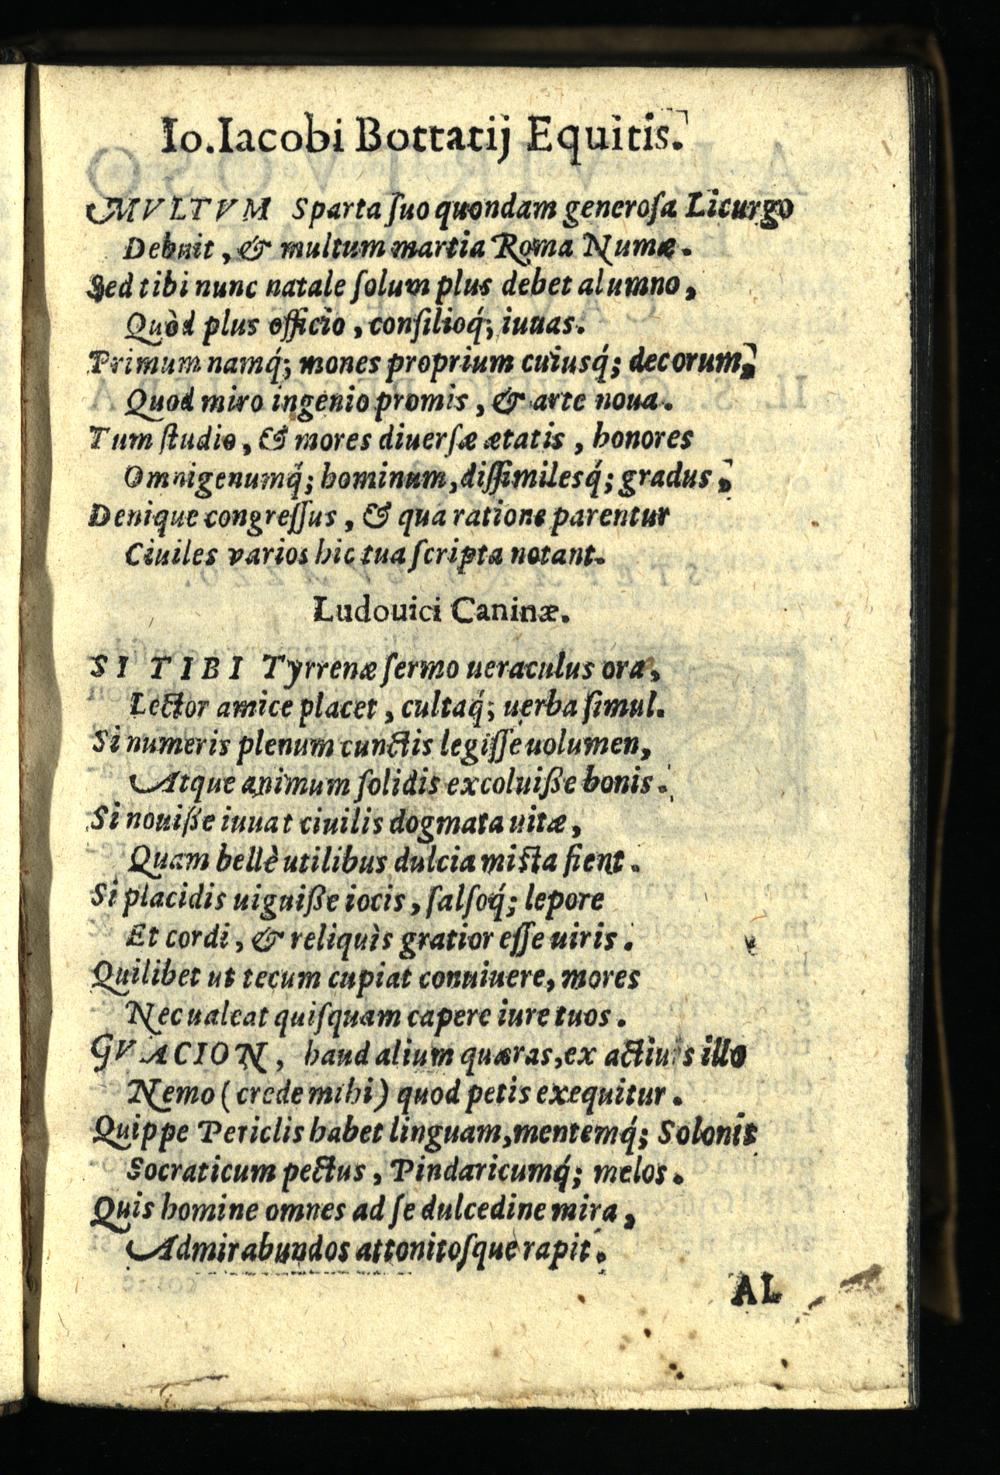 Io. Iacobi Bottatij Equitis.
MVLTVM Sparta ſuo quondam generoſa Licurgo
Debuit, & multum martia Roma Numæ.
Sed tibi nunc natale ſolum plus debet alumno,
Quòd plus officio, conſilioq́; iuuas.
Primum namq́; mones proprium cuiusq́; decorum,
Quod miro ingenio promis, & arte noua.
Tum ſtudio, & mores diuerſæ ætatis, honores
Omnigenumq́; hominum, diſſimilesq́; gradus,
Denique congreſſus, & qua ratione parentur
Ciuiles varios hic tua ſcripta notant.
Ludouici Caninæ.
SI TIBI Tyrrenæ ſermo ueraculus oræ,
Lector amice placet, cultaq́; uerba ſimul.
Si numeris plenum cunctis legiſſe uolumen,
Atque animum ſolidis excoluiße bonis.
Si nouiße iuuat ciuilis dogmata uitæ,
Quam bellè utilibus dulcia miſta fient.
Si placidis uiguiße iocis, ſalſoq́; lepore
Et cordi, & reliquìs gratior eſſe uiris.
Quilibet ut tecum cupiat conuiuere, mores
Nec ualeat quiſquam capere iure tuos.
GVACION, haud alium quæras, ex actiuis illo
Nemo (crede mihi) quod petis exequitur.
Quippe Periclis habet linguam, mentemq́; Solonis
Socraticum pectus, Pindaricumq́; melos.
Quis homine omnes ad ſe dulcedine mira,
Admirabundos attonitoſque rapit.
AL